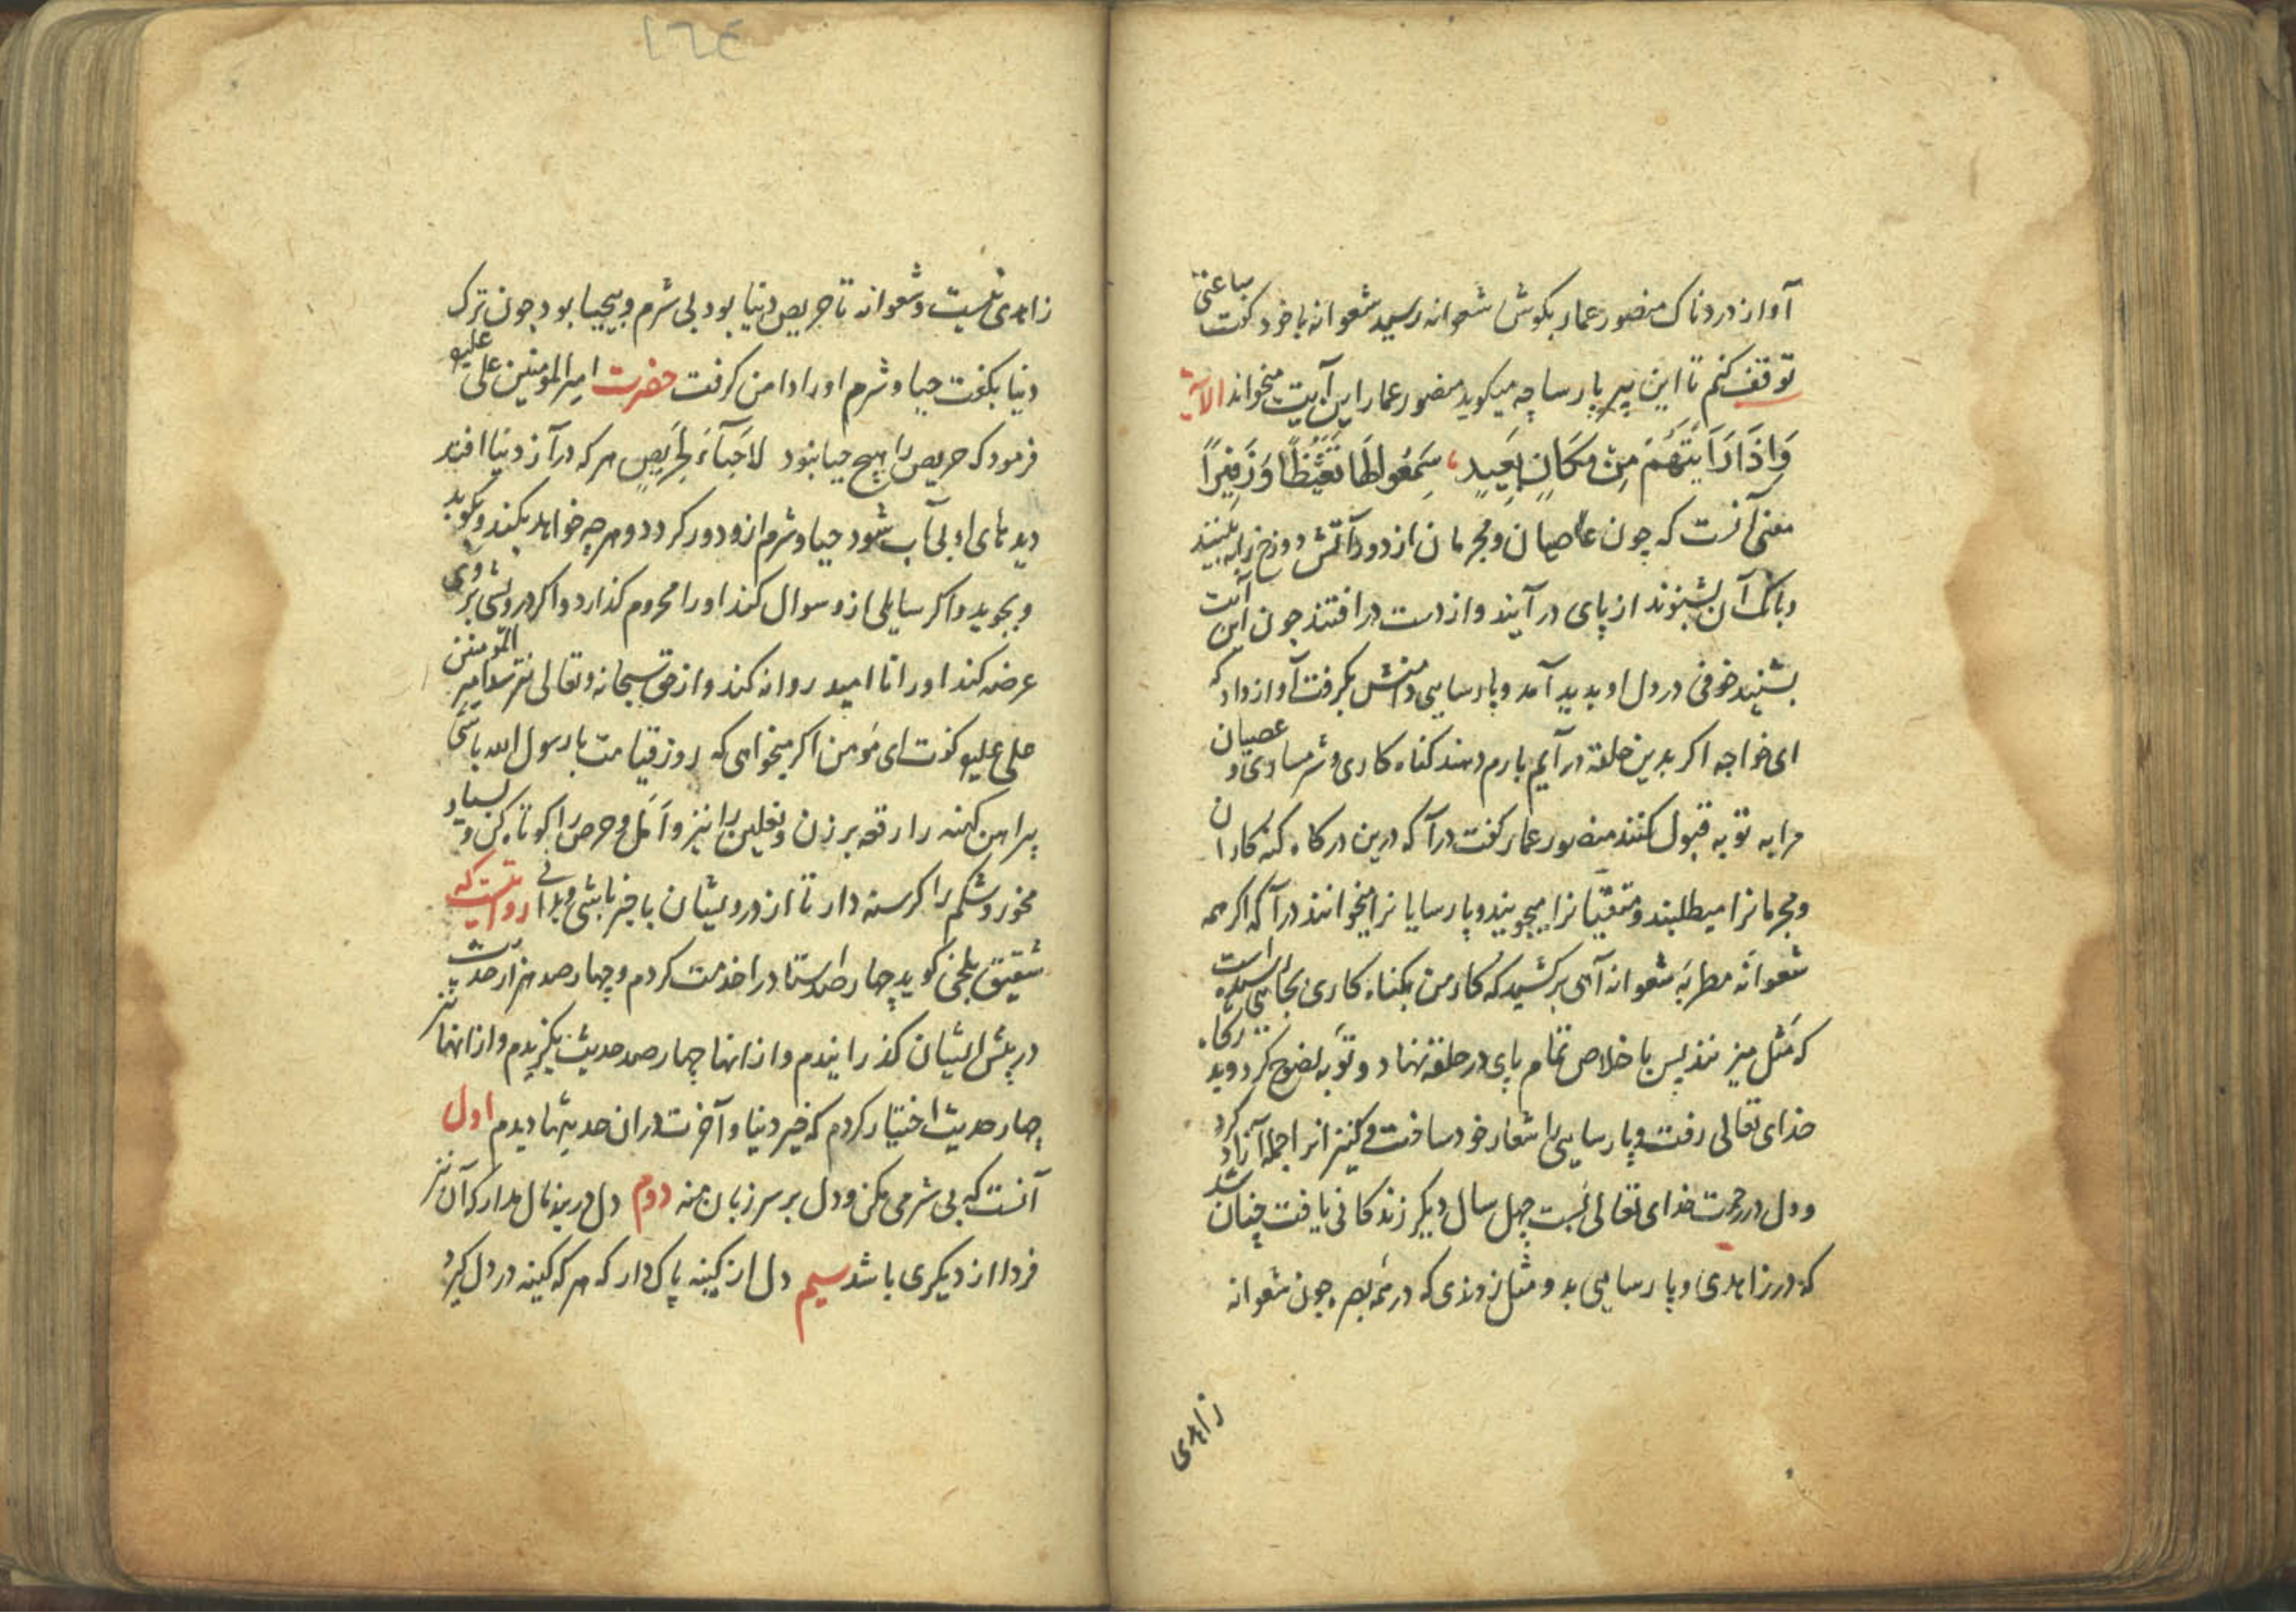 آواز دردناک منصور عمار بکوش شعوانه رسید شعوانه با خود کفت ساعتی
توقف کنم تا این پیر پارسا چه میکوید منصور عمار این آیت میخواند الآیة
وَاِذَا رَاَیتَهُم مِن مَکَانٍ بَعِیدٍ سَمِعُوا لَهَا تَغَیُّظًا وَزَفِیرًا
معنی آنست که چون عاصیان و مجرمان از دور آتش دوزخ را به بینند
و بانک آن بشنوند از پای در آیند و از دست در افتند چون این آیت
بشنید خوفی در دل او پدید آمد و پارسایی دامنش بکرفت آواز داد که
ای خواجه اکر بدین حلقه در آیم بارم دهند کناه کاری و شرمساری و عصیان
مرا به توبه قبول کنند منصور عمار کفت درآ که درین درکاه کنه کاران
و مجرمانرا میطلبند و متقیانرا میجویند و پارسایانرا میخوانند درآ که اکر همه
شعوانه مطربه شعوانه آهی برکشید که کار من بکناه کاری بجایی رسیده است
که مَثَل میزنند پس با خلاص تمام پای در حلقه نهاد و توبه نصوح کرد و بدرکاه
خدای تعالی رفت و پارسایی را شعار خود ساخت و کنیزانرا جمله آزاد کرد
و دل در رحمت خدای تعالی بست چهل سال دیکر زندکانی یافت چنان شد
که در زاهدی و پارسایی بدو مثل زدندی که در همه بصره چون شعوانه
زاهدی
١٦٤
زاهدی نیست و شعوانه تا حریص دنیا بود بی شرم و بیحیا بود چون ترک
دنیا بکفت حیا و شرم او را دامن کرفت حضرت امیر المومنین علی علیه
فرمود که حریص را هیچ حیا نبود لاحَیآءَ لِحَریصٍ هر که در آز دنیا افتد
دیدهای او بی آب شود حیا و شرم ازو دور کردد و هر چه خواهد بکند و بکوید
و بجوید و اکر سایلی ازو سوال کند او را محروم کذارد و اکر درویشی بر وی
عرضه کند او را نا امید روانه کند و از حق سبحانه و تعالی نترسد امیر المومنین
علی علیه کفت ای مومن اکر میخواهی که روز قیامت با رسول الله باشی
پیراهن کهنه را رقعه بر زن و نعلین را نیز و اَمَل و حرص را کوتاه کن و بسیار
مخور و شکم را کرسنه دار تا از درویشان با خبر باشی و بدانی روایتست که
شقیق بلخی کوید چهارصد استاد را خدمت کردم و چهارصد هزار حدیث
در پیش ایشان کذرانیدم و از انها چهارصد حدیث بکزیدم و از انها نیز
چهار حدیث اختیار کردم که خیر دنیا و آخرت در ان حدیثها دیدم اول
آنست که بی شرمی مکن و دل بر سر زبان منه دوم دل در بند مال مدار که آن نیز
فردا از دیکری باشد سیم دل از کینه پاک دار که هر که کینه در دل کیرد